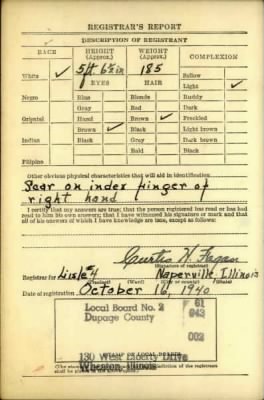 REGISTRAR'S REPORT
DESCRIPTION OF REGISTRANT
RACE HEIGHT (Approx.) WEIGHT (Approx.) COMPLEXION
White ✓ 5 ft. 6½ in 185 Sallow
EYES HAIR Light ✓
Negro Blue Blonde Ruddy
Gray Red Dark
Oriental Hazel Brown ✓ Freckled
Brown ✓ Black Light brown
Indian Black Gray Dark brown
Bald Black
Filipino
Other obvious physical characteristics that will aid in identification
Scar on index finger of
right hand
I certify that my answers are true; that the person registered has read or has had
read to him his own answers; that I have witnessed his signature or mark and that
all of his answers of which I have knowledge are true, except as follows:
Curtis H. Fagan
(Signature of registrar)
Registrar for Lisle #4 Naperville, Illinois
(Precinct) (Ward) (City or county) (State)
Date of registration October 16, 1940
Local Board No. 2 61
Dupage County 043
002
130 West Liberty Drive
STAMP OF LOCAL BOARD
Wheaton, Illinois